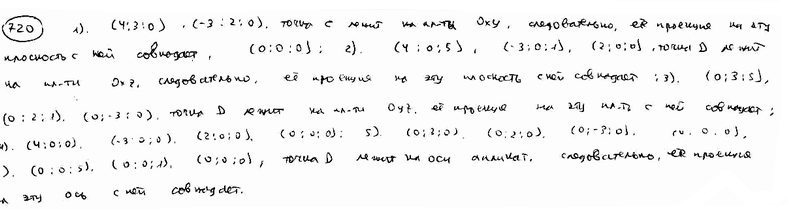 720 1). (4;3;0), (-3;2;0), точка C лежит на пл-ти Oxy, следовательно, её проекция на эту
плоскость с ней совпадает, (0;0;0); 2). (4;0;5), (-3;0;1), (2;0;0), точка D лежит
на пл-ти Oxz, следовательно, её проекция на эту плоскость с ней совпадает; 3). (0;3;5),
(0;2;1), (0;-3;0), точка D лежит на пл-ти Oyz, её проекция на эту пл-ть с ней совпадает;
). (4;0;0), (-3;0;0), (2;0;0), (0;0;0); 5). (0;3;0), (0;2;0), (0;-3;0), (0;0;0),
). (0;0;5), (0;0;1), (0;0;0), точка D лежит на оси аппликат, следовательно, её проекция
а эту ось с ней совпадает.